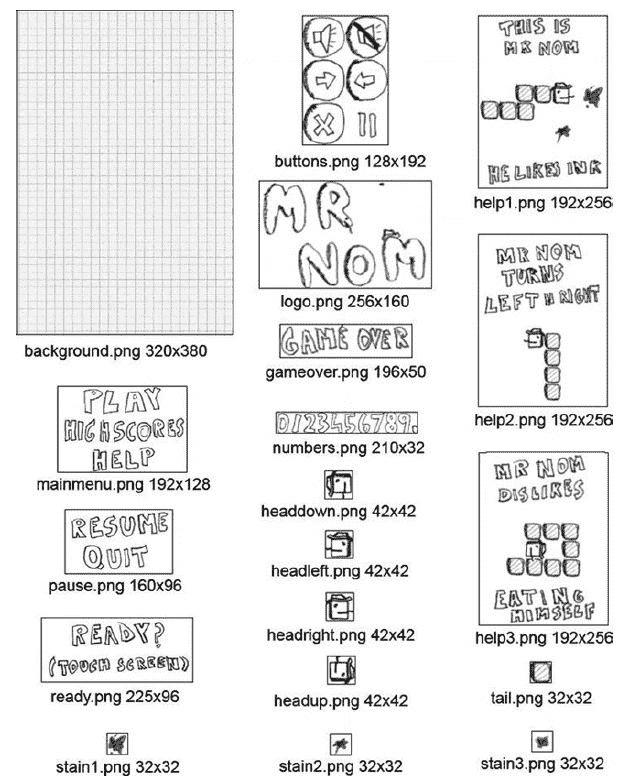 background.png 320x380
PLAY
HIGHSCORES
HELP
mainmenu.png 192x128
RESUME
QUIT
pause.png 160x96
READY?
(TOUCH SCREEN)
ready.png 225x96
stain1.png 32x32
buttons.png 128x192
MR
NOM
logo.png 256x160
GAME OVER
gameover.png 196x50
0123456789.
numbers.png 210x32
headdown.png 42x42
headleft.png 42x42
headright.png 42x42
headup.png 42x42
stain2.png 32x32
THIS IS
MR NOM
HE LIKES INK
help1.png 192x256
MR NOM
TURNS
LEFT N RIGHT
help2.png 192x256
MR NOM
DISLIKES
EATING
HIMSELF
help3.png 192x256
tail.png 32x32
stain3.png 32x32